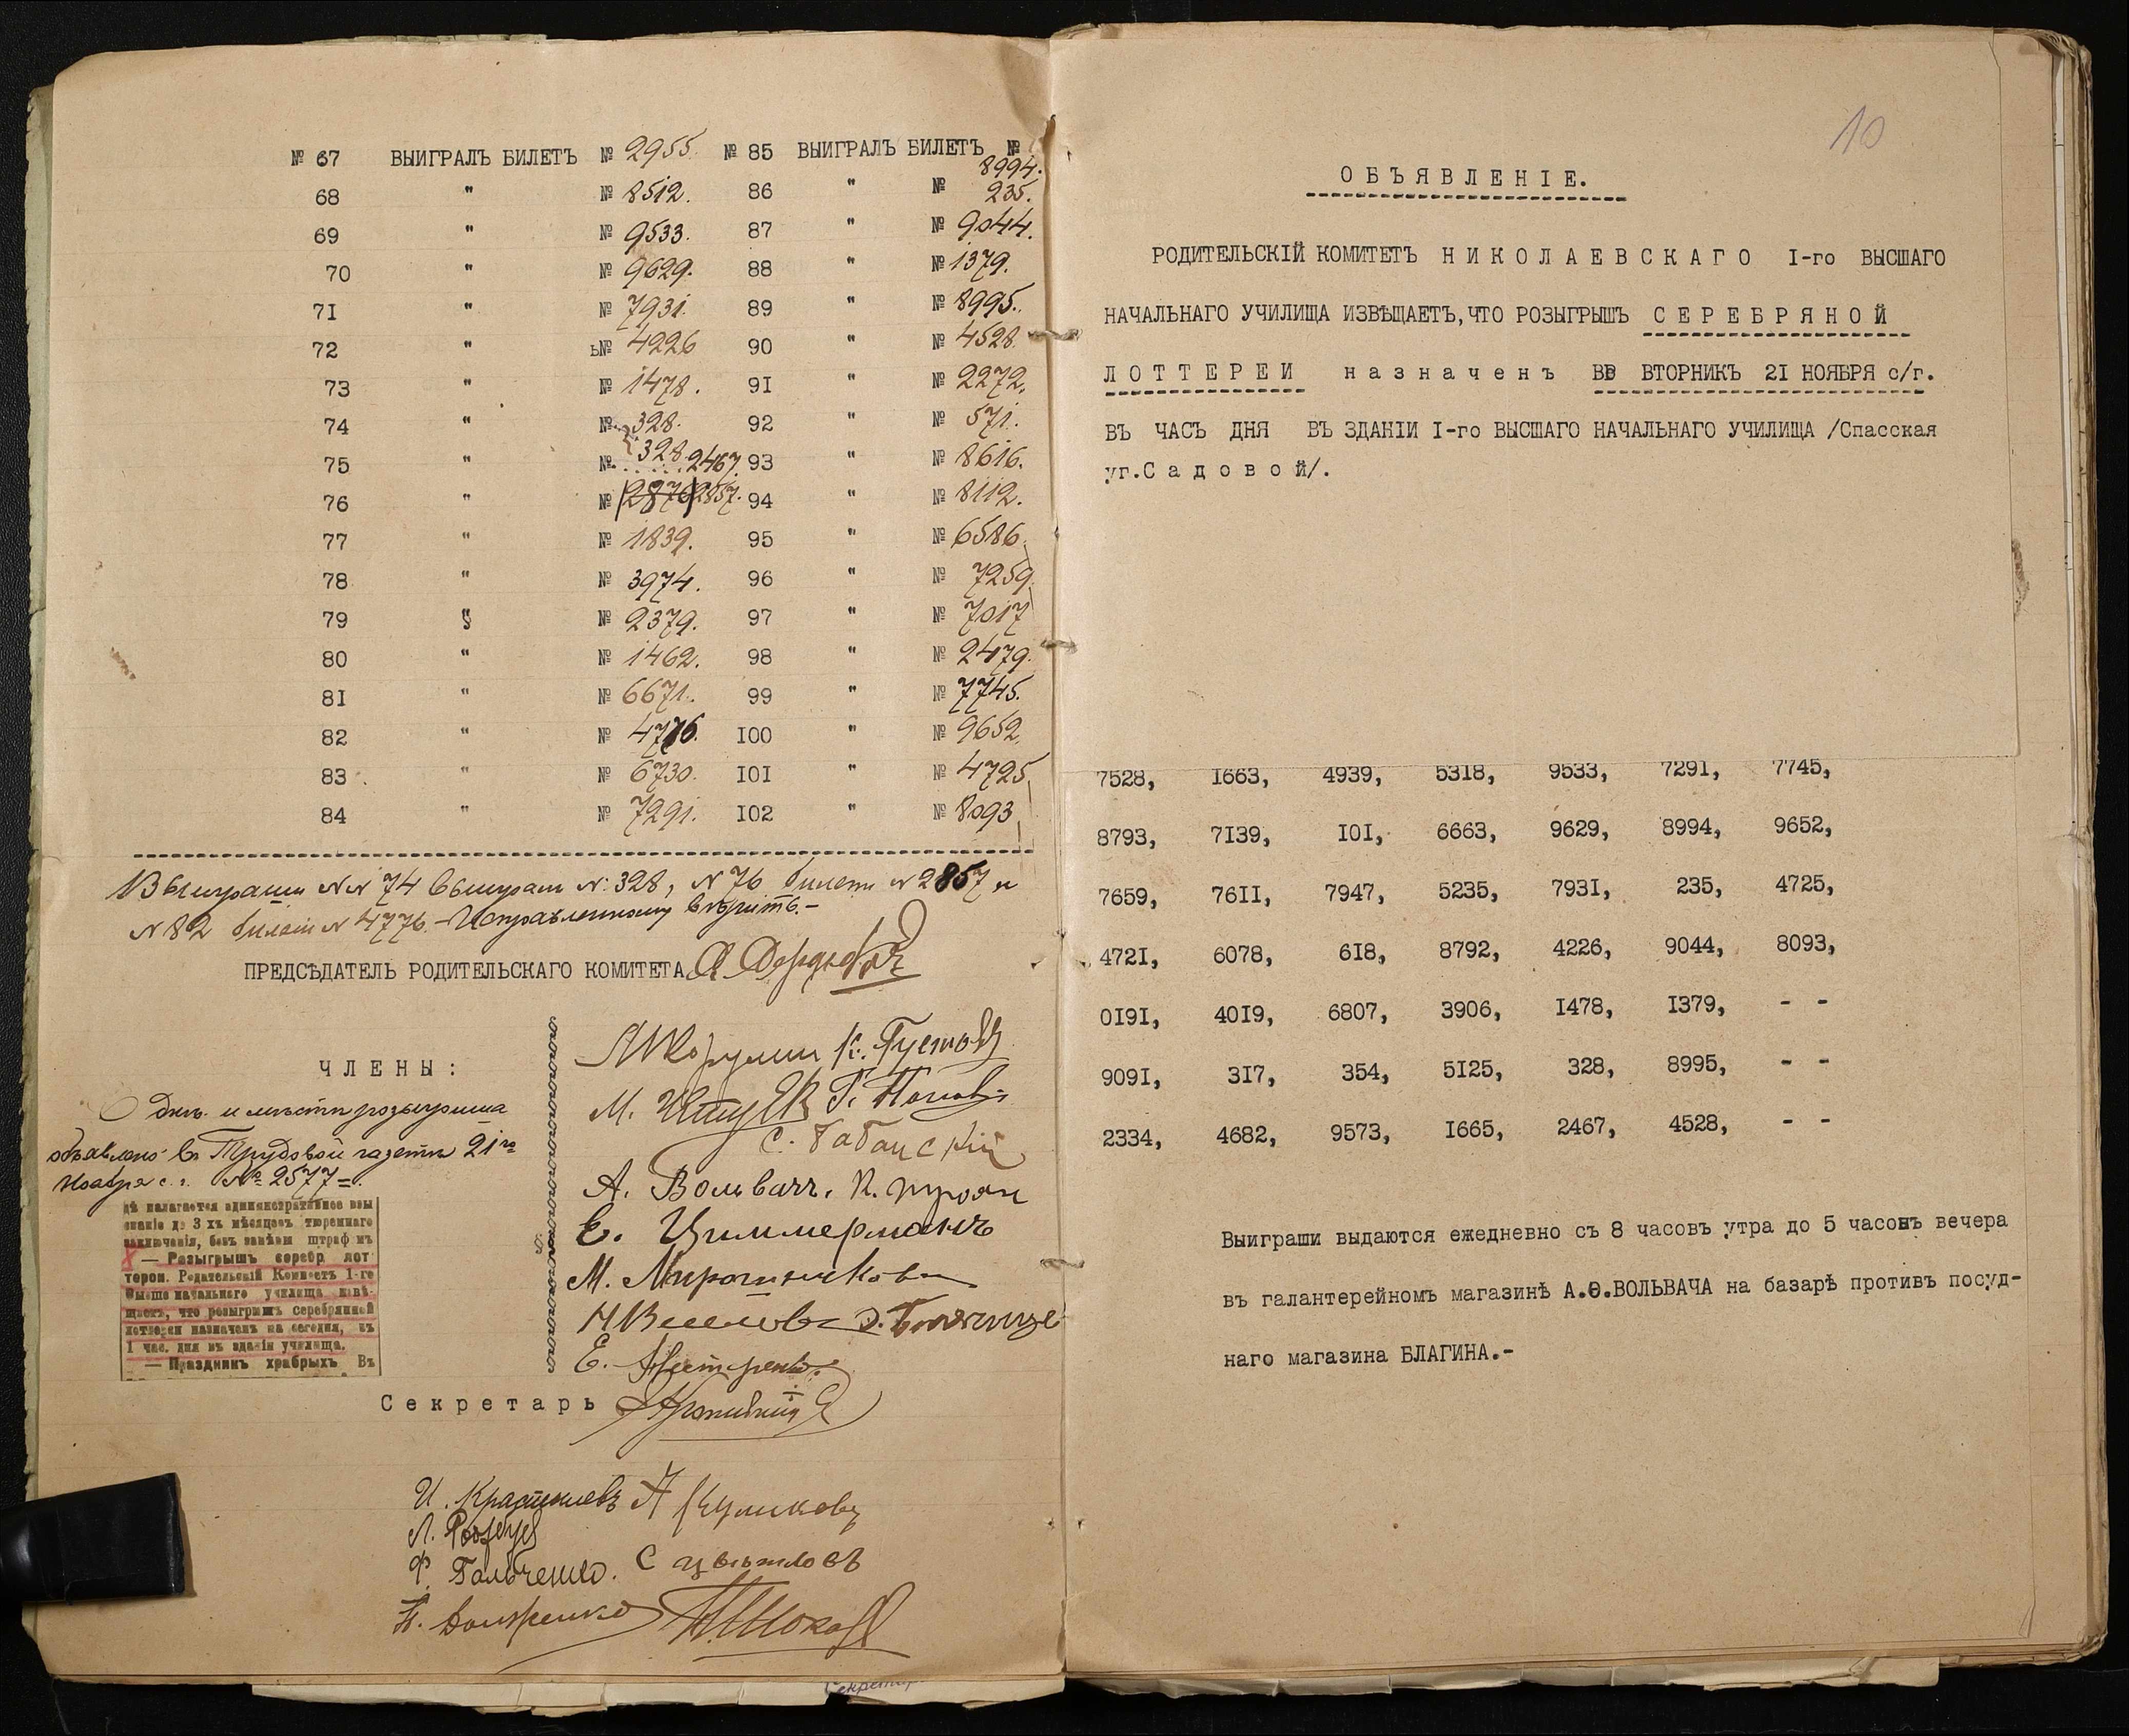 № 67 ВЫИГРАЛЪ БИЛЕТЪ № 2955 № 85 ВЫИГРАЛЪ БИЛЕТЪ № 8994.
68 " № 8512. 86 " № 235.
69 " № 9533. 87 " № 9044.
70 " № 9629. 88 " № 1379.
7I " № 7931. 89 " № 8995.
72 " ь№ 4226 90 " № 4528.
73 " № 1478. 9I " № 2272.
74 " № 328. 92 " № 571.
75 " № 328 2467. 93 " № 8616.
76 " № (2876) 2857. 94 " № 8112.
77 " № 1839. 95 " № 6586.
78 " № 3974. 96 " № 7259.
79 " № 2379. 97 " № 7017
80 " № 1462. 98 " № 2479.
8I " № 6671. 99 " № 7745.
82 " № 4776. I00 " № 9652.
83 " № 6730. I0I " № 4725.
84 " № 7291. I02 " № 8093
Выиграши №№ 74 выиграл №: 328, № 76 билетъ № 2857 и
№ 82 билетъ № 4776. - Исправленному вѣрить. -
ПРЕДСѢДАТЕЛЬ РОДИТЕЛЬСКАГО КОМИТЕТА
ЧЛЕНЫ:
К. Густовъ
М. Г. Поповъ
С. Бабанскій
А. Вольвачъ.
Е. Циммерманъ
М. Мирошниковъ
Е. Нестеренко
О днѣ и мѣстѣ розыгрыша
объявлено въ Трудовой газетѣ 21го
Ноября с. г. № 2577 =.
дѣ налагается административное взы
сканіе до 3 хъ мѣсяцевъ тюремнаго
заключенія, безъ замѣны штрафомъ
— Розыгрышъ серебр лот
тереи. Родительскій Комитетъ 1-го
Высше начальнаго училища извѣ-
щаетъ, что розыгрышъ серебрянной
лотереи назначенъ на сегодня, въ
1 час. дня въ зданіи училища.
— Праздникъ храбрыхъ Въ
Секретарь
А Куликовъ
Л.
С Цвѣтковъ
Ф. Гальченко.
Н. Долженко
10
ОБЪЯВЛЕНІЕ.
РОДИТЕЛЬСКІЙ КОМИТЕТЪ НИКОЛАЕВСКАГО I-го ВЫСШАГО
НАЧАЛЬНАГО УЧИЛИЩА ИЗВѢЩАЕТЪ, ЧТО РОЗЫГРЫШЪ СЕРЕБРЯНОЙ
ЛОТТЕРЕИ назначенъ ВВ ВТОРНИКЪ 2I НОЯБРЯ с/г.
ВЪ ЧАСЪ ДНЯ ВЪ ЗДАНІИ I-го ВЫСШАГО НАЧАЛЬНАГО УЧИЛИЩА /Спасская
уг.Садовой/.
7528, I663, 4939, 5318, 9533, 7291, 7745,
8793, 7I39, I0I, 6663, 9629, 8994, 9652,
7659, 76II, 7947, 5235, 793I, 235, 4725,
472I, 6078, 618, 8792, 4226, 9044, 8093,
0I9I, 40I9, 6807, 3906, I478, I379, - -
909I, 3I7, 354, 5I25, 328, 8995, - -
2334, 4682, 9573, I665, 2467, 4528, - -
Выиграши выдаются ежедневно съ 8 часовъ утра до 5 часовъ вечера
въ галантерейномъ магазинѣ А.Ѳ.ВОЛЬВАЧА на базарѣ противъ посуд-
наго магазина БЛАГИНА.-